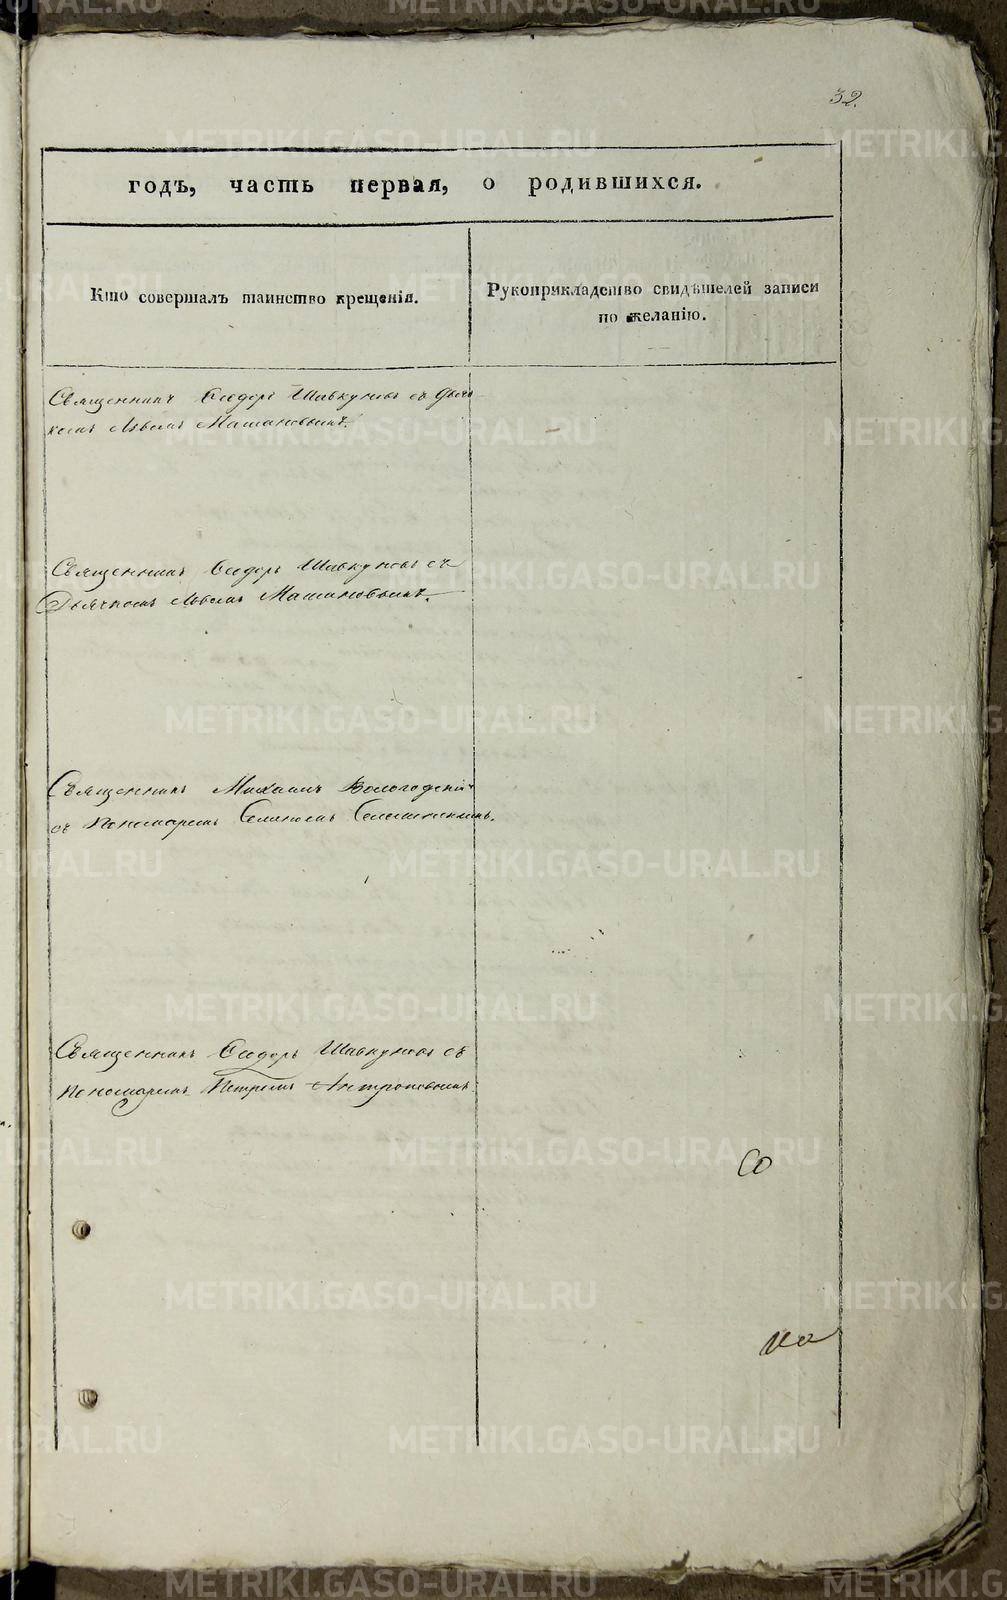 32.
годъ, часть первая, о родившихся.
Кто совершалъ таинство крещенія.
Рукоприкладство свидѣтелей записи
по желанію.
Священникъ Ѳеодоръ Шавкуновъ съ Дьяч
комъ Львомъ Машановымъ.
Священникъ Ѳеодоръ Шавкуновъ съ
Дьячкомъ Львомъ Машановымъ.
Священникъ Михаилъ Вологодскій
съ Пономаремъ
Священникъ Ѳеодоръ Шавкуновъ съ
Пономаремъ Петромъ Антроповымъ.
METRIKI.GASO-URAL.RU